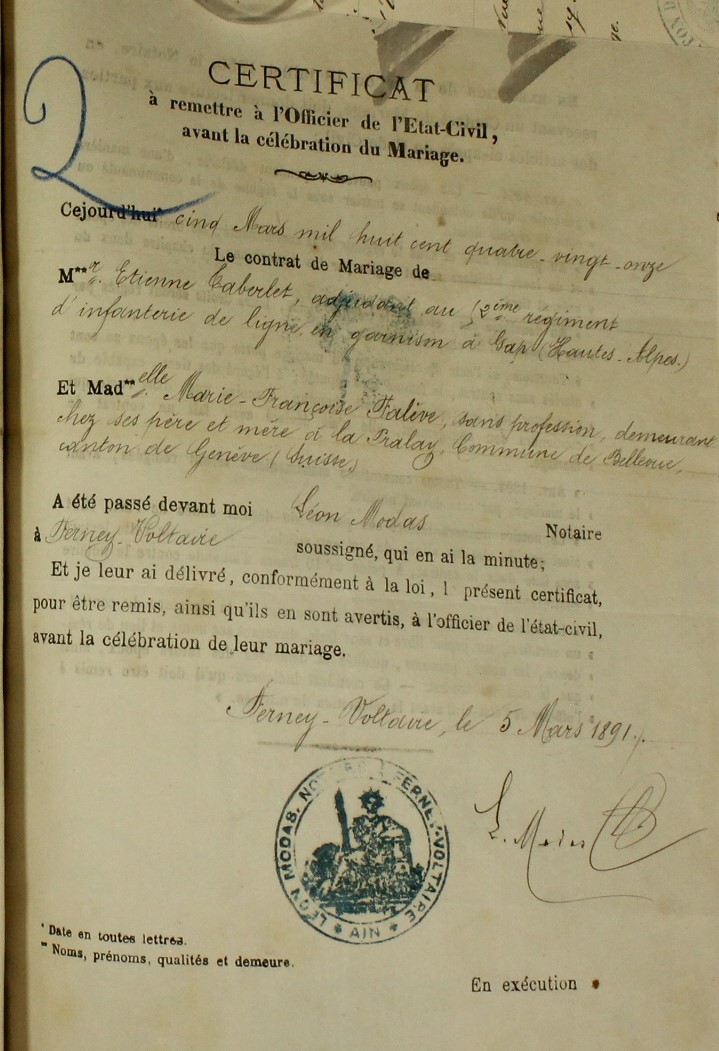 CERTIFICAT
à remettre à l'Officier de l'Etat-Civil,
avant la célébration du Mariage.
2
Cejourd'hui* cinq Mars mil huit cent quatre-vingt-onze
Le contrat de Mariage de
M**r. Etienne Taberlet, adjudant au 52ème régiment
d'infanterie de ligne en garnison à Gap (Hautes-Alpes.)
Et Mad**elle Marie-Françoise Falève, sans profession, demeurant
chez ses père et mère à la Pralay, Commune de Bellevue,
canton de Genève (Suisse)
A été passé devant moi Léon Modas Notaire
à Ferney-Voltaire soussigné, qui en ai la minute;
Et je leur ai délivré, conformément à la loi, l présent certificat,
pour être remis, ainsi qu'ils en sont avertis, à l'officier de l'état-civil,
avant la célébration de leur mariage.
Ferney-Voltaire, le 5 Mars 1891.
L. Modas
LÉON MODAS, NOTAIRE À FERNEY-VOLTAIRE
* AIN *
* Date en toutes lettres.
** Noms, prénoms, qualités et demeure.
En exécution